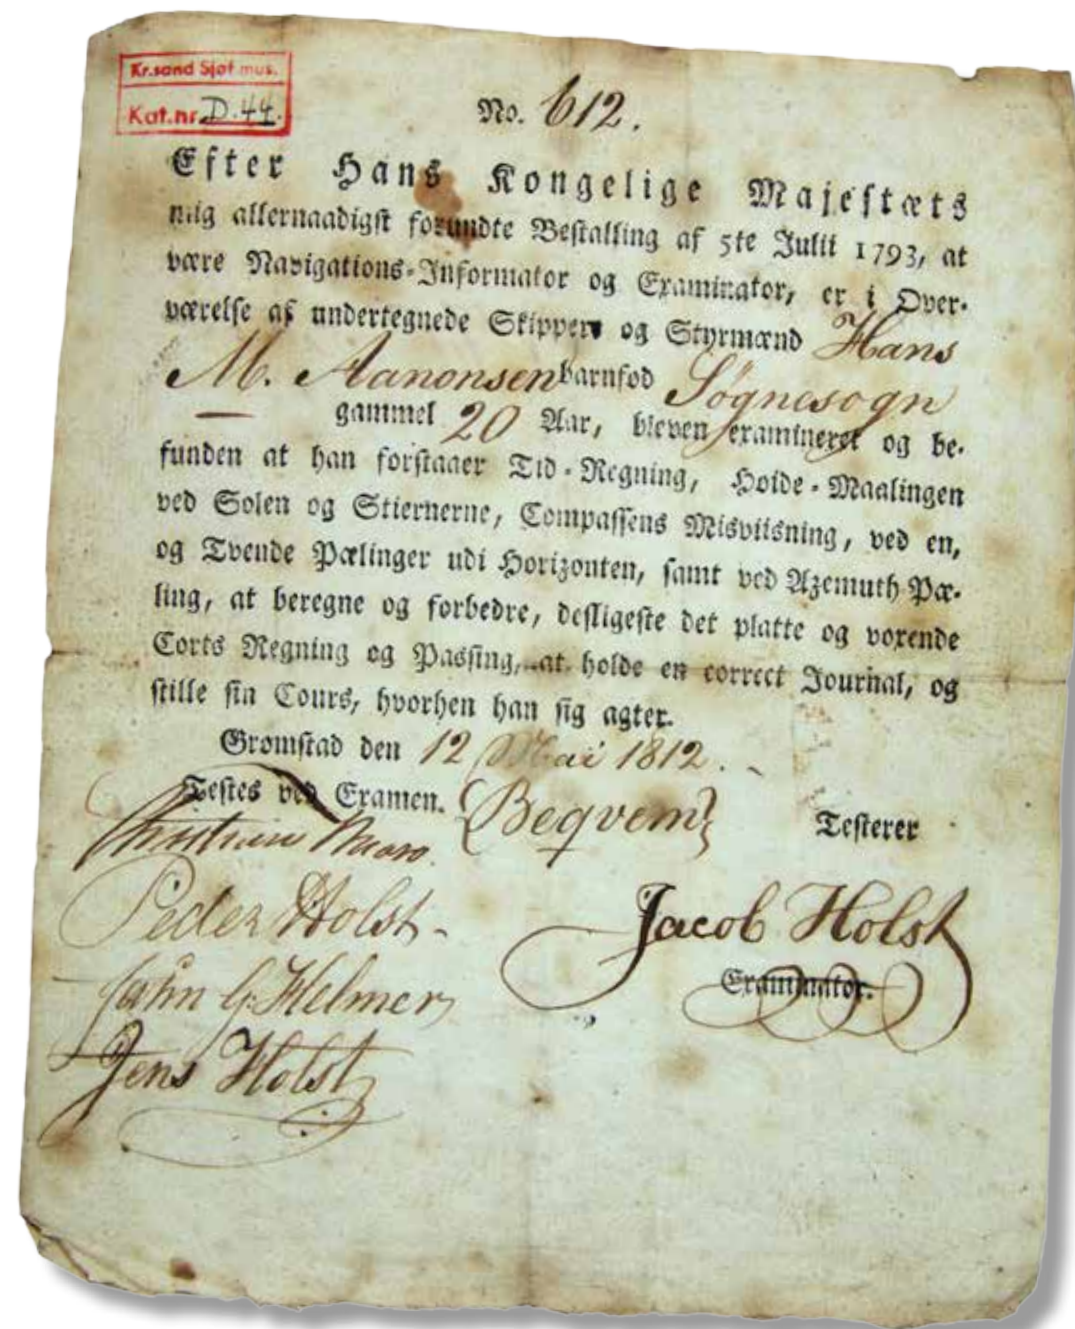 Kr.sand Sjøf mus.
Kat.nr. D.44.
No. 612.
Efter Hans Kongelige Majestæts
mig allernaadigst forundte Bestalling af 5te Julii 1793, at
være Navigations-Informator og Examinator, er i Over-
værelse af undertegnede Skippere og Styrmænd Hans
M. Aanonsen barnfød Søgnesogn
gammel 20 Aar, bleven examineret og be-
funden at han forstaaer Tid-Regning, Hoide-Maalingen
ved Solen og Stiernerne, Compassens Misviisning, ved en,
og Tvende Pælinger udi Horizonten, samt ved Azemuth Pæ-
ling, at beregne og forbedre, desligeste det platte og voxende
Corts Regning og Passing, at holde en correct Journal, og
stille sin Cours, hvorhen han sig agter.
Gromstad den 12 Mai 1812.
Testes ved Examen. {Beqvem} Testerer
Christian
Peder Holst
Jahn G. Helmer
Jens Holst
Jacob Holst
Examinator.